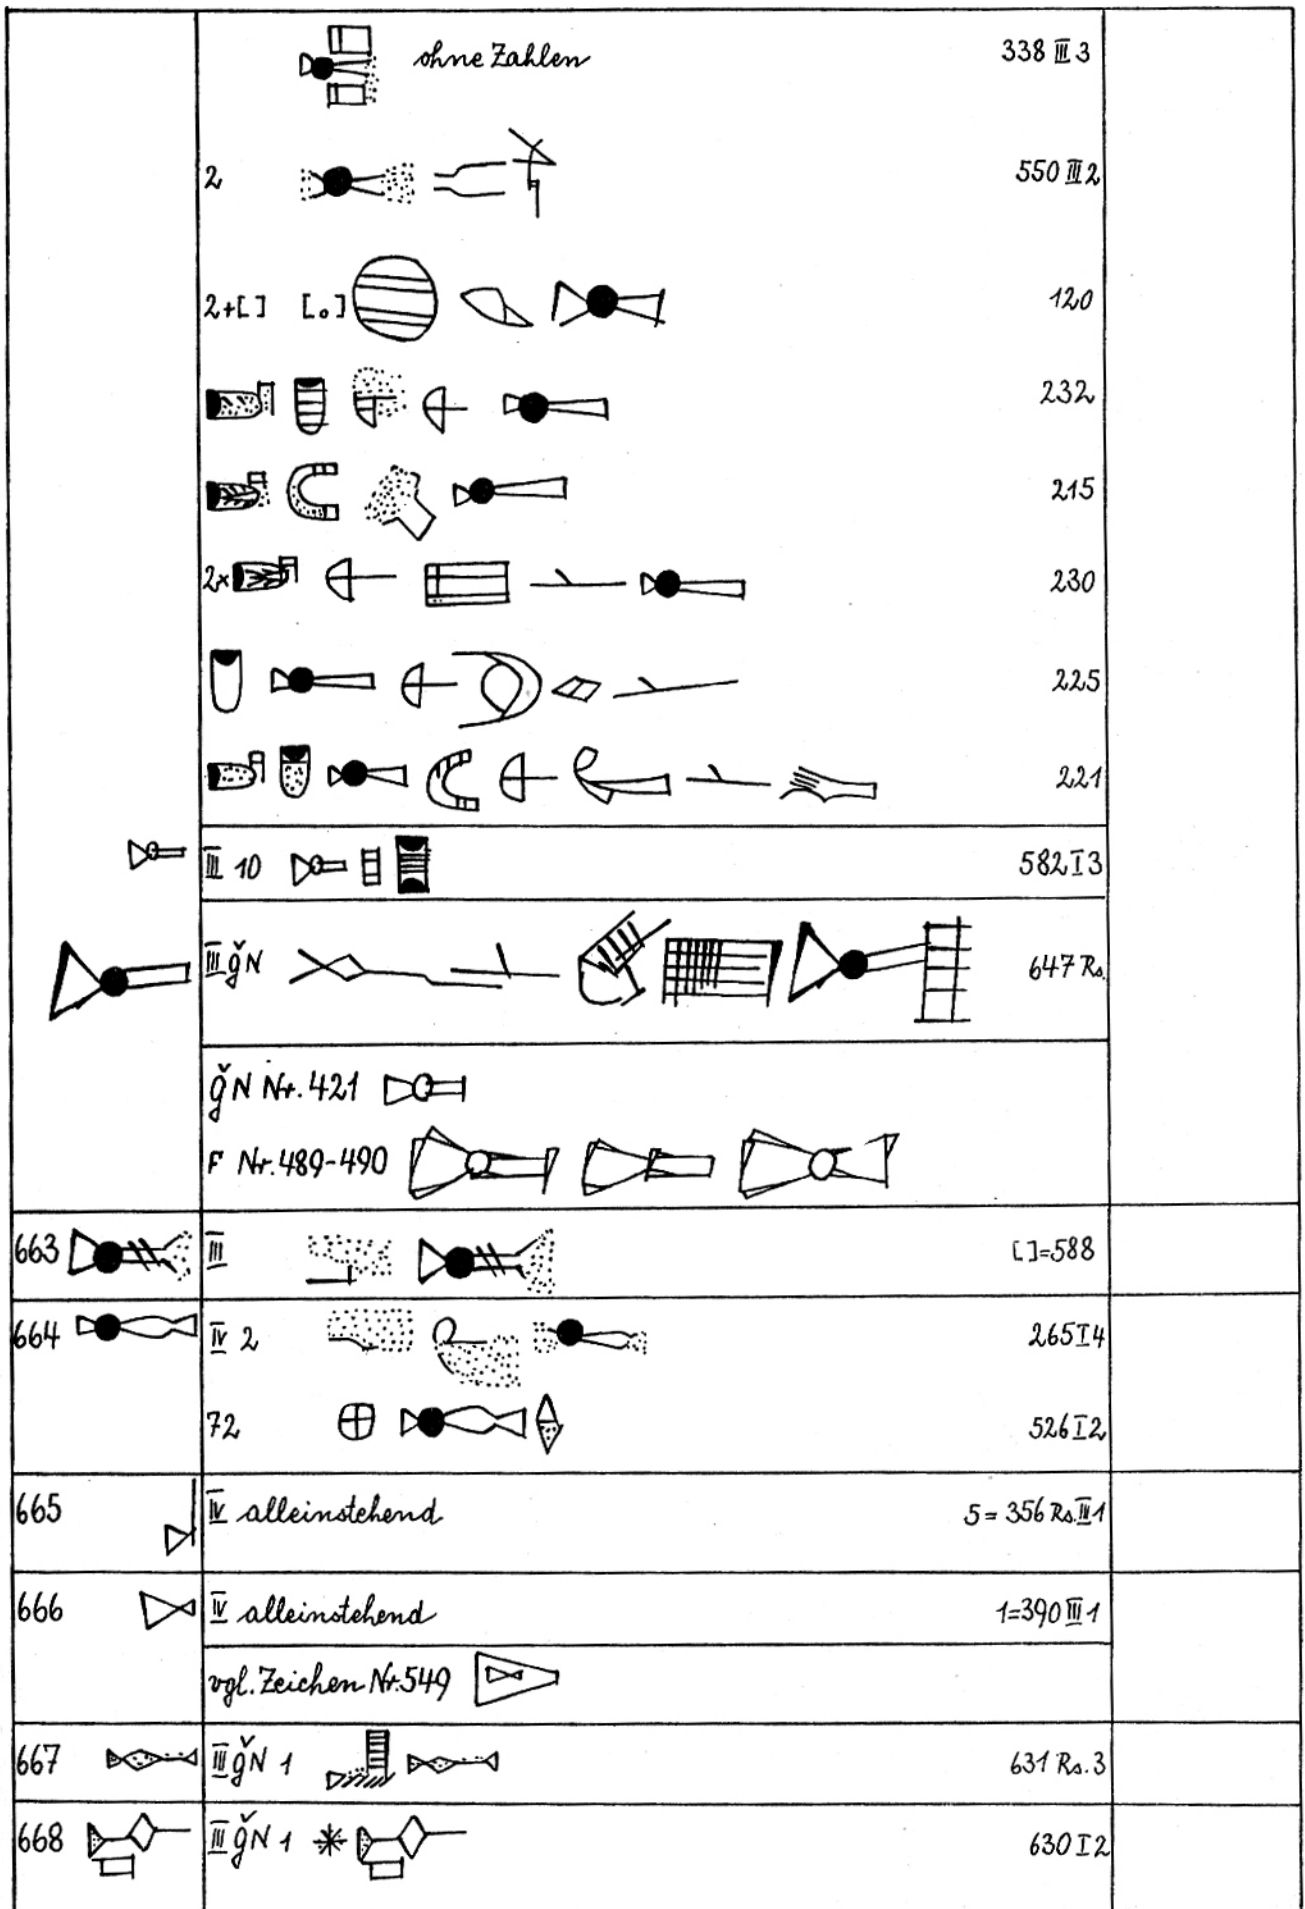 ohne Zahlen 338 III 3
2 550 III 2
2+[ ] [o] 120
232
215
2x 230
225
221
III 10 582 I 3
III ǧN 647 Rs.
ǧN Nr. 421
F Nr. 489-490
663 III [ ]=588
664 IV 2 265 I 4
72 526 I 2
665 IV alleinstehend 5=356 Rs. III 1
666 IV alleinstehend 1=390 III 1
vgl. Zeichen Nr. 549
667 III ǧN 1 631 Rs. 3
668 III ǧN 1 630 I 2